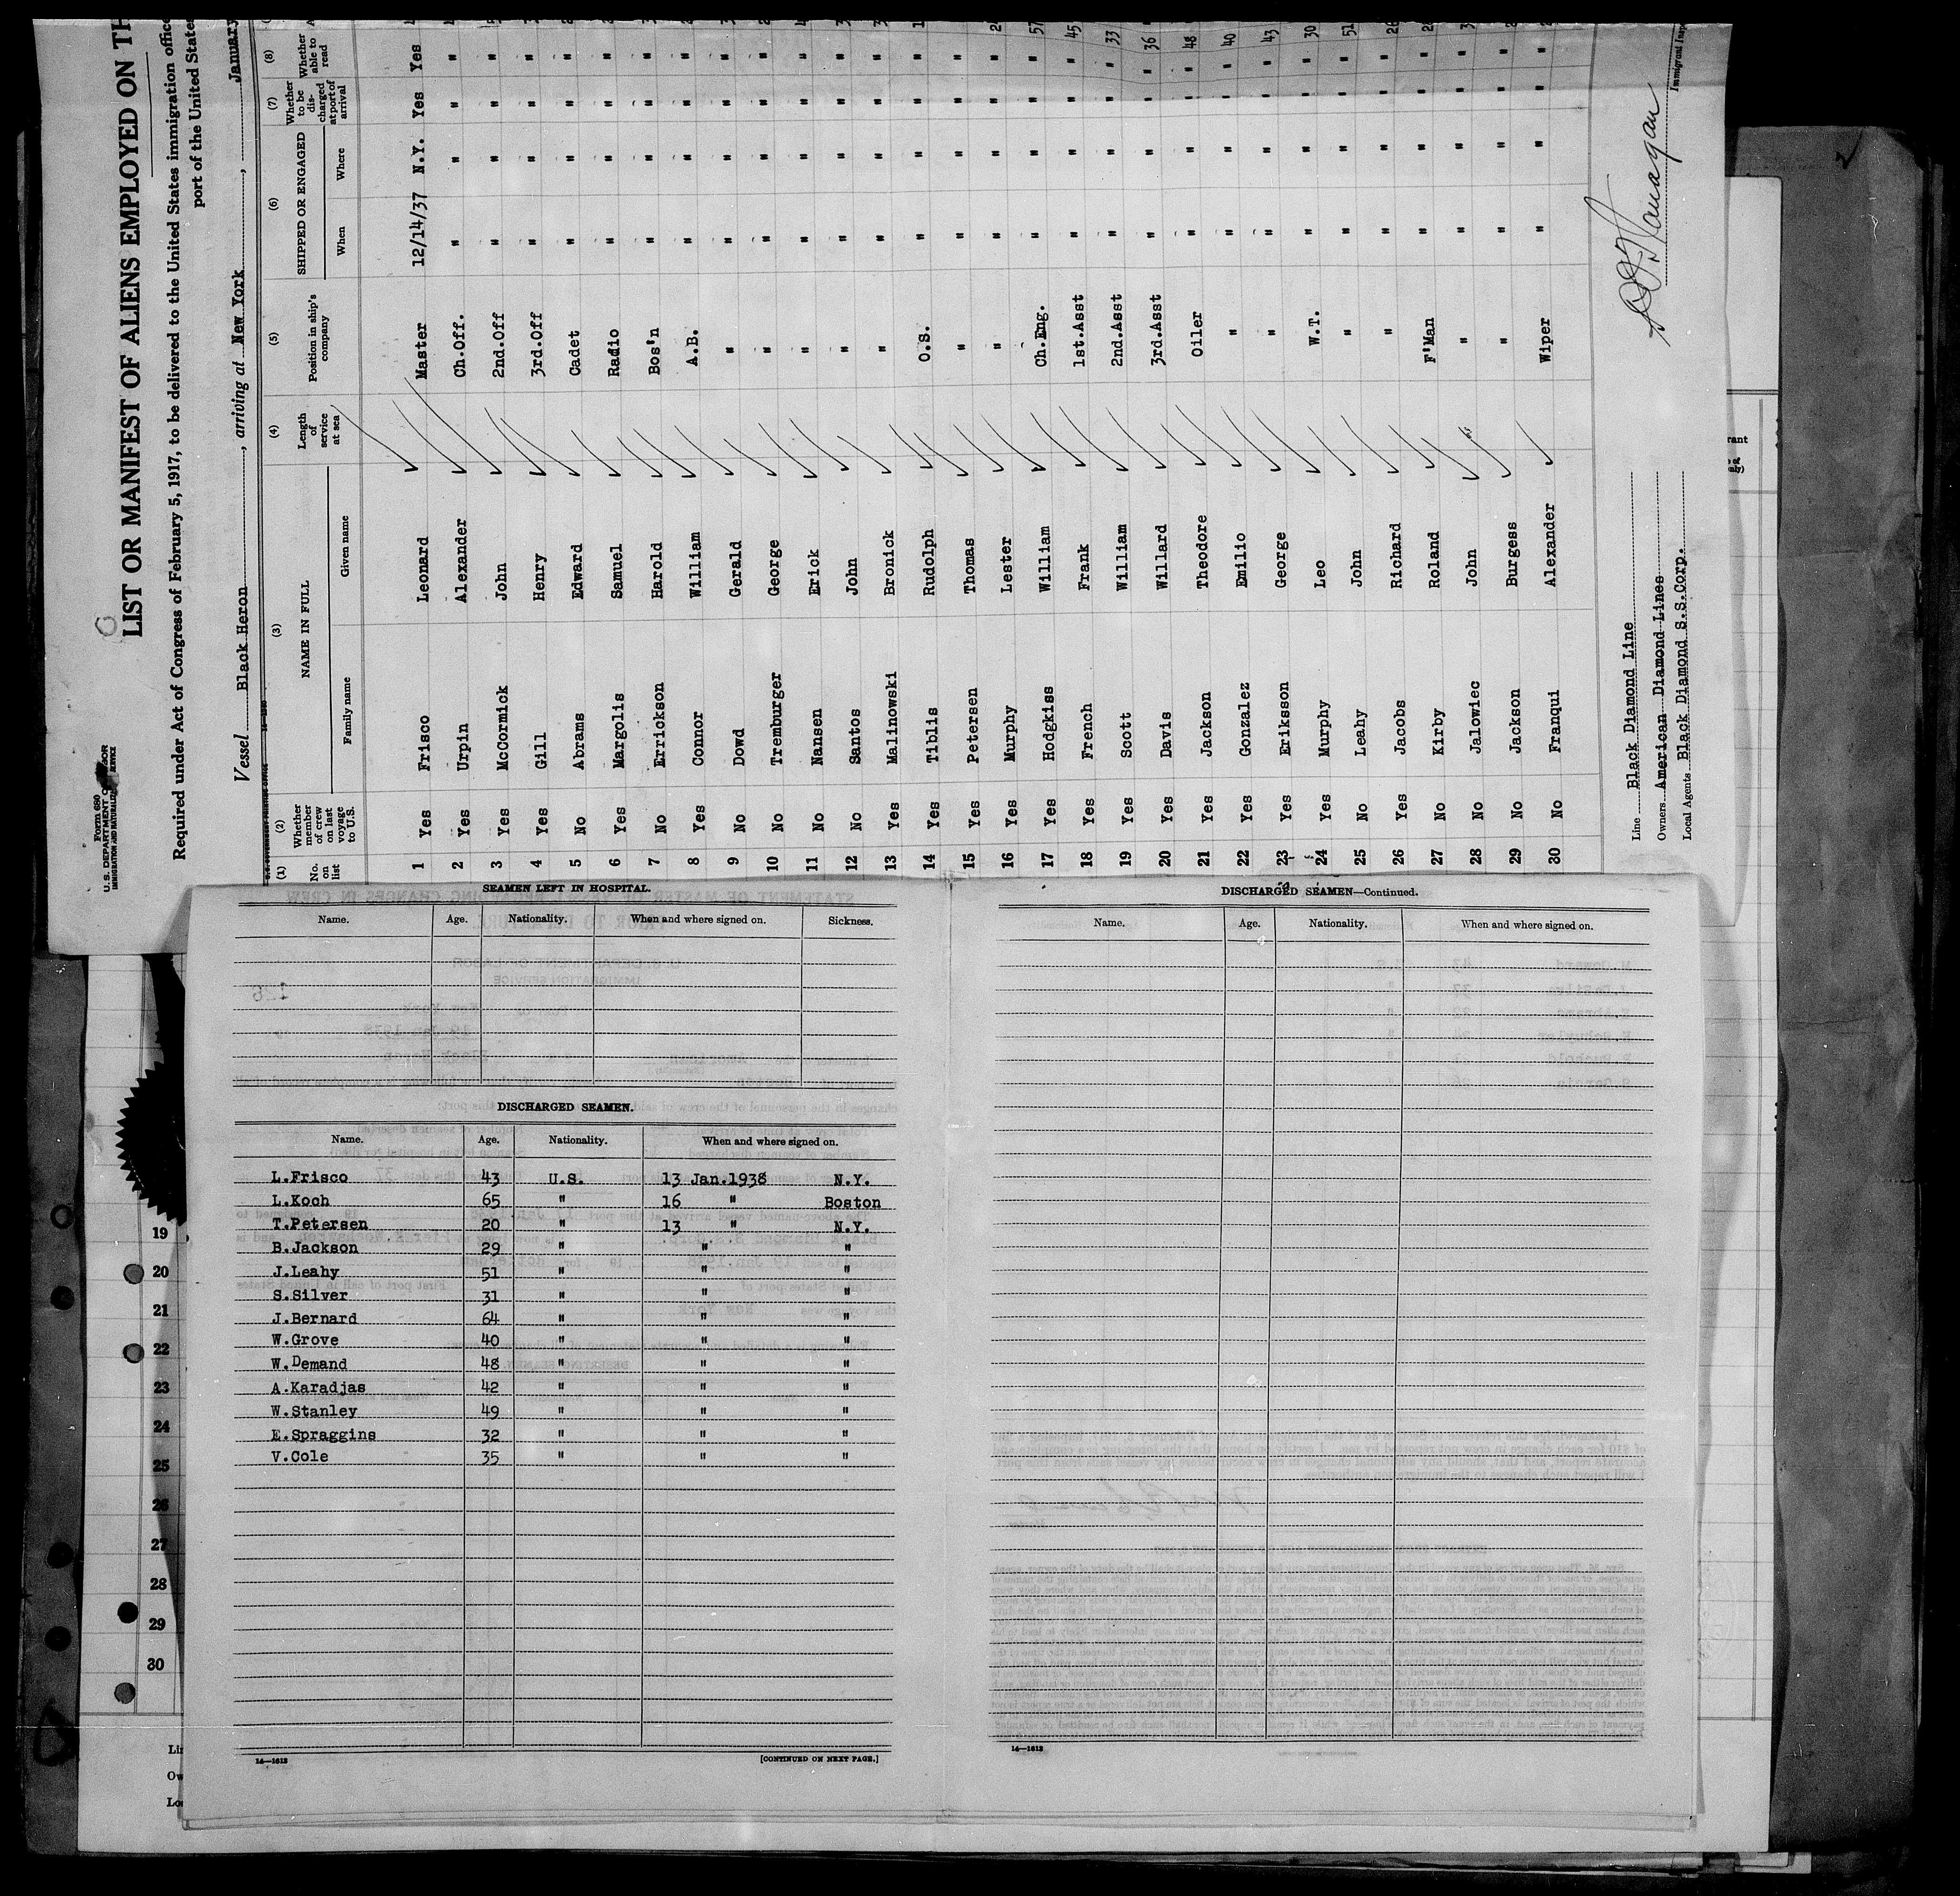 Form 680
U.S. DEPARTMENT OF LABOR
IMMIGRATION AND NATURALIZATION SERVICE
LIST OR MANIFEST OF ALIENS EMPLOYED ON TH
Required under Act of Congress of February 5, 1917, to be delivered to the United States immigration office
port of the United States
Vessel Black Heron, arriving at New York, January
(1) (2) (3) (4) (5) (6) (7) (8)
No. on list
Whether member of crew on last voyage to U.S.
NAME IN FULL
Family name Given name
Length of service at sea
Position in ship's company
SHIPPED OR ENGAGED
When Where
Whether to be discharged at port of arrival
Whether able to read
1 Yes Frisco Leonard Master 12/14/37 N.Y. Yes Yes
2 Yes Urpin Alexander Ch.Off. " " " "
3 Yes McCormick John 2nd.Off " " " "
4 Yes Gill Henry 3rd.Off " " " "
5 No Abrams Edward Cadet " " " "
6 Yes Margolis Samuel Radio " " " "
7 No Errickson Harold Bos'n " " " "
8 Yes Connor William A.B. " " " "
9 No Dowd Gerald " " " " "
10 No Tremburger George " " " " "
11 No Nansen Erick " " " " "
12 No Santos John " " " " "
13 Yes Malinowski Bronick " " " " "
14 Yes Tiblis Rudolph O.S. " " " "
15 Yes Petersen Thomas " " " " "
16 Yes Murphy Lester " " " " "
17 Yes Hodgkiss William Ch.Eng. " " " " 57
18 Yes French Frank 1st.Asst " " " " 45
19 Yes Scott William 2nd.Asst " " " " 33
20 Yes Davis Willard 3rd.Asst " " " " 36
21 Yes Jackson Theodore Oiler " " " " 48
22 Yes Gonzalez Emilio " " " " " 40
23 Yes Eriksson George " " " " " 43
24 Yes Murphy Leo W.T. " " " " 30
25 No Leahy John " " " " " 51
26 Yes Jacobs Richard " " " " " 26
27 No Kirby Roland F'Man " " " "
28 No Jalowiec John " " " " "
29 No Jackson Burgess " " " " "
30 No Franqui Alexander Wiper " " " "
Line Black Diamond Line
Owners American Diamond Lines
Local Agents Black Diamond S.S.Corp.
Immigrant Insp
SEAMEN LEFT IN HOSPITAL.
Name. Age. Nationality. When and where signed on. Sickness.
DISCHARGED SEAMEN.
Name. Age. Nationality. When and where signed on.
L.Frisco 43 U.S. 13 Jan.1938 N.Y.
L.Koch 65 " 16 " Boston
T.Petersen 20 " 13 " N.Y.
B.Jackson 29 " " "
J.Leahy 51 " " "
S.Silver 31 " " "
J.Bernard 64 " " "
W.Grove 40 " " "
W.Demand 48 " " "
A.Karadjas 42 " " "
W.Stanley 49 " " "
E.Spraggins 32 " " "
V.Cole 35 " " "
14—1613
[CONTINUED ON NEXT PAGE.]
DISCHARGED SEAMEN—Continued.
Name. Age. Nationality. When and where signed on.
14—1613
19
20
21
22
23
24
25
26
27
28
29
30
Lin
Ow
Loc
rant
only)